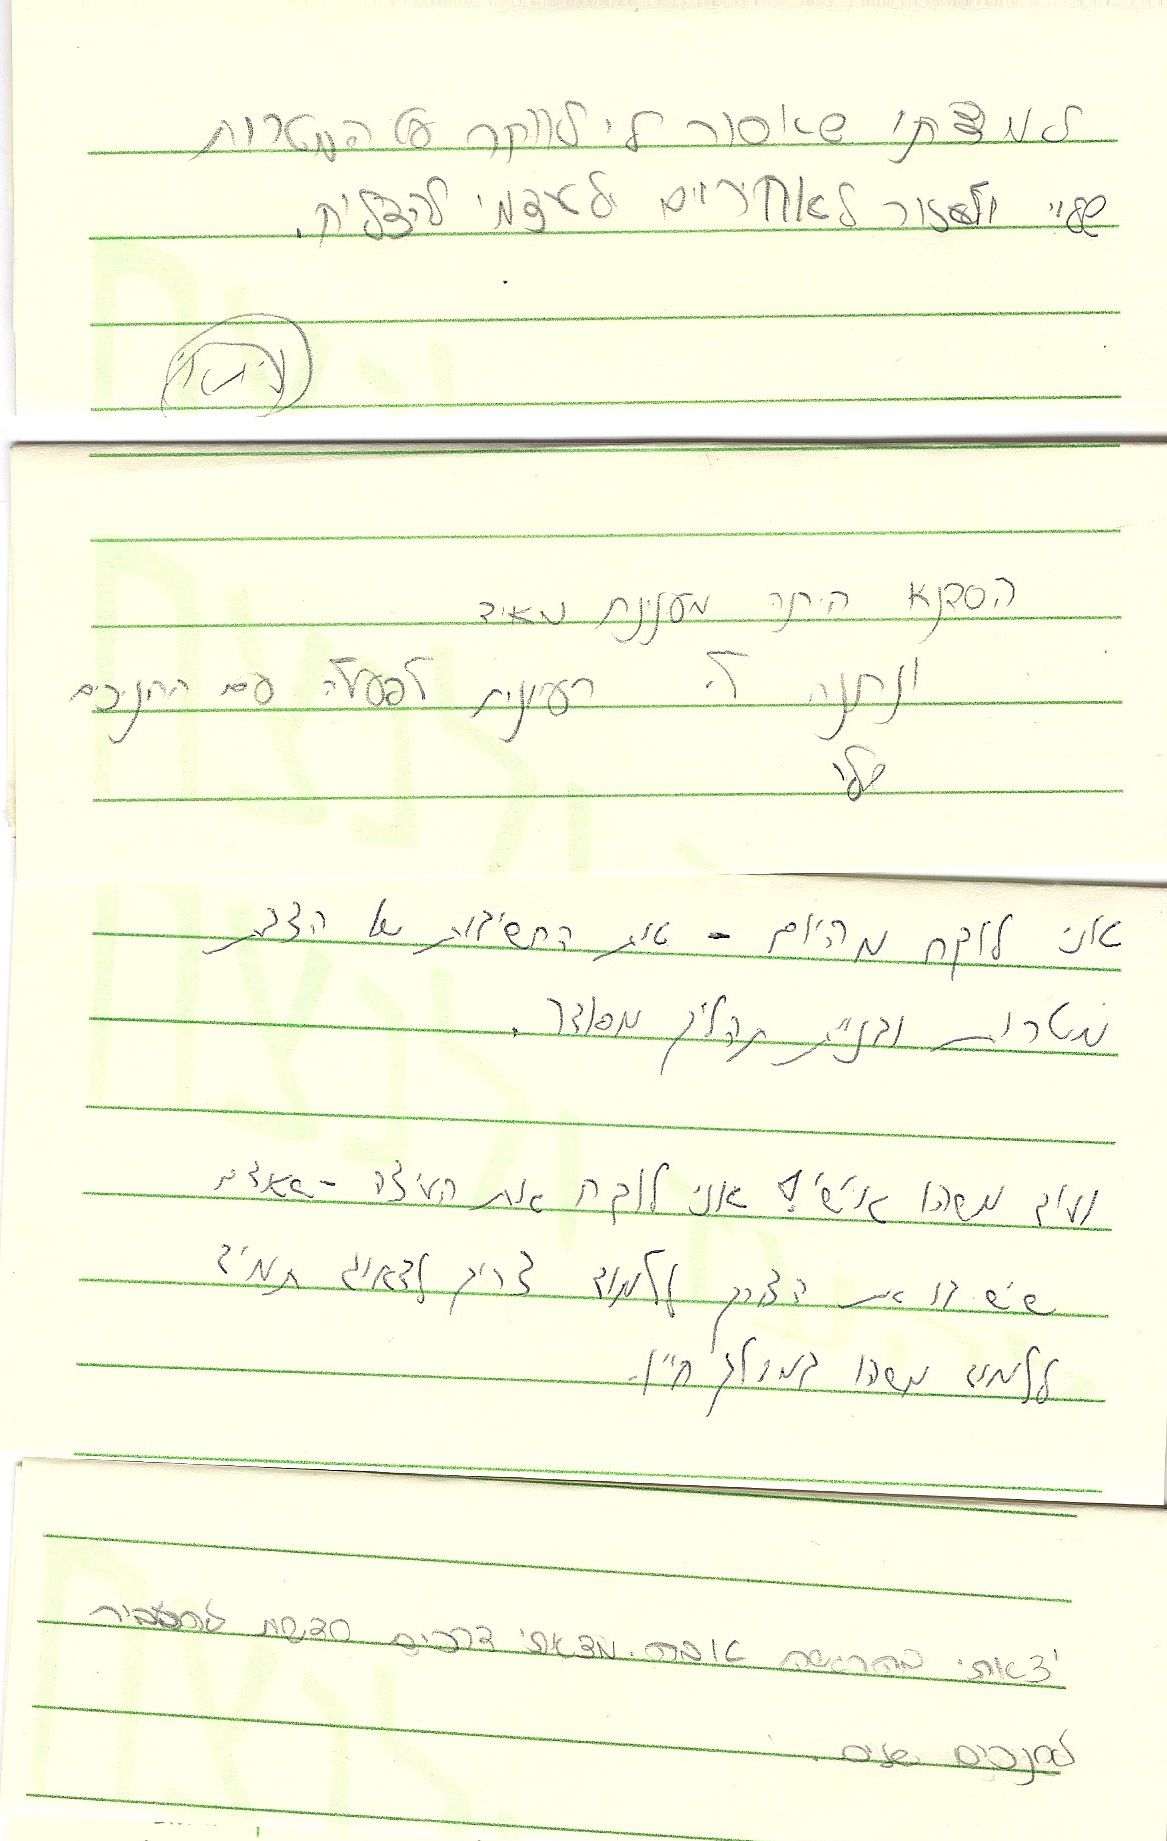 למדתי שאסור לי לוותר על המטרות
שלי ולעזור לאחרים ולעצמי להצליח.
הסדנא היתה מענינת מאוד
ונתנה לי רעיונות לפעולה עם החניכים
שלי
אני לוקח מהיום - את החשיבות של הצבת
מטרות ובניית תהליך מסודר.
ועוד משהו אישי? אני לוקח את העצה - שאדם
שיש לו את הצורך ללמוד צריך לדאוג תמיד
ללמוד משהו במהלך חייו.
יצאתי בהרגשה טובה. מצאתי דרכים חדשות להעביר
לחניכים שלי.